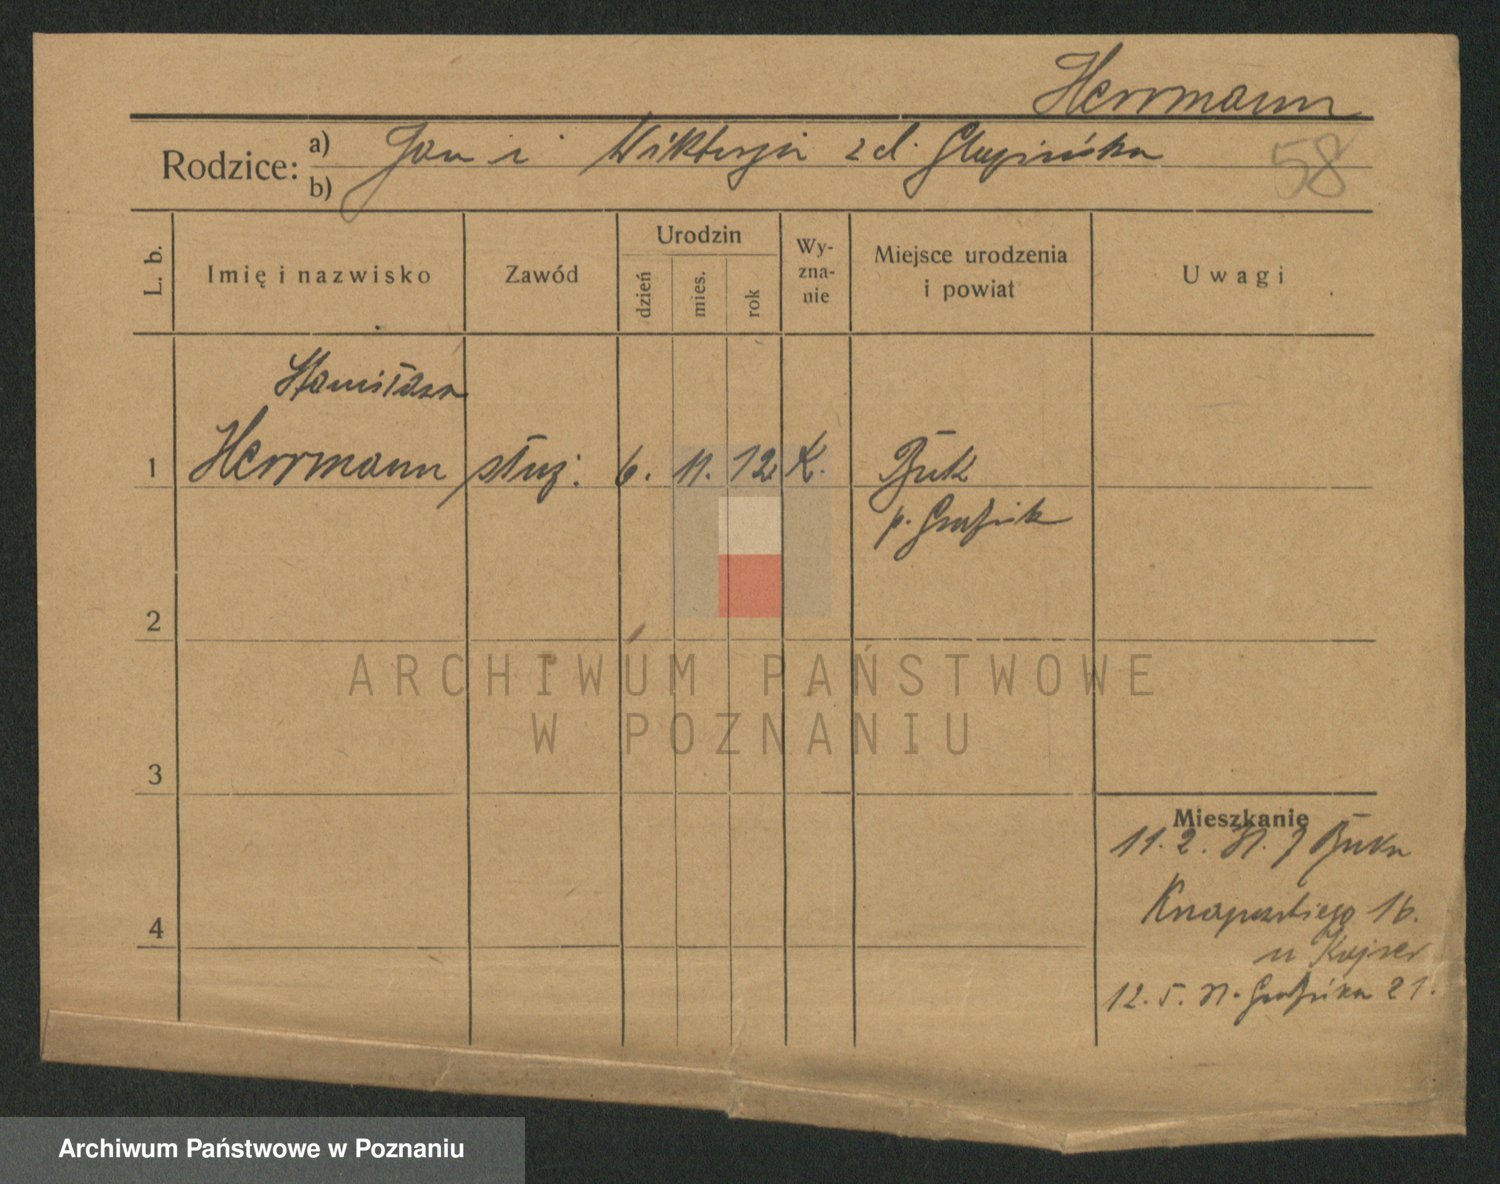 Herrmann
Rodzice: a) Jan i Wiktorja z d.
b)
58
L. b.
Imię i nazwisko
Zawód
Urodzin
dzień
mies.
rok
Wy-
zna-
nie
Miejsce urodzenia
i powiat
Uwagi
Stanisław
1 Herrmann służ. 6. 11. 12. K. Buk
p. Grodzisk
2
3
4
Mieszkanie
11. 2. 31. z Buku
Knapowskiego 16.
u Kajser
12. 5. 31. Grodziska 21.
ARCHIWUM PAŃSTWOWE
W POZNANIU
Archiwum Państwowe w Poznaniu